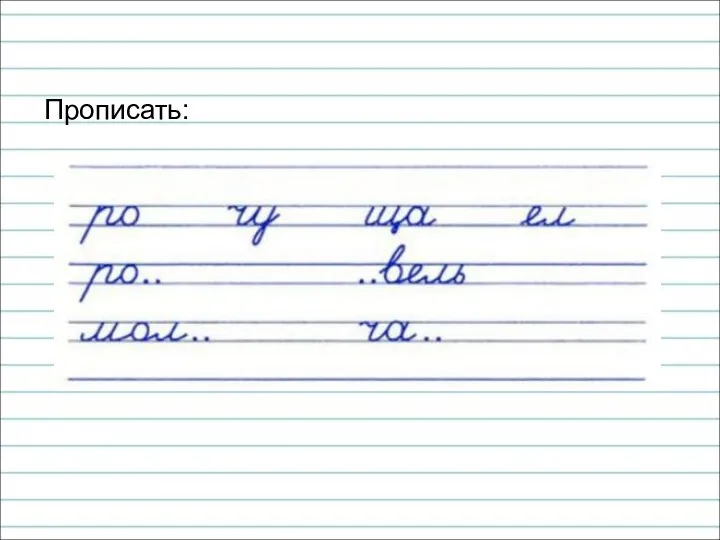 Прописать:
ро чу ща ел
ро.. ..вель
мол.. ча..